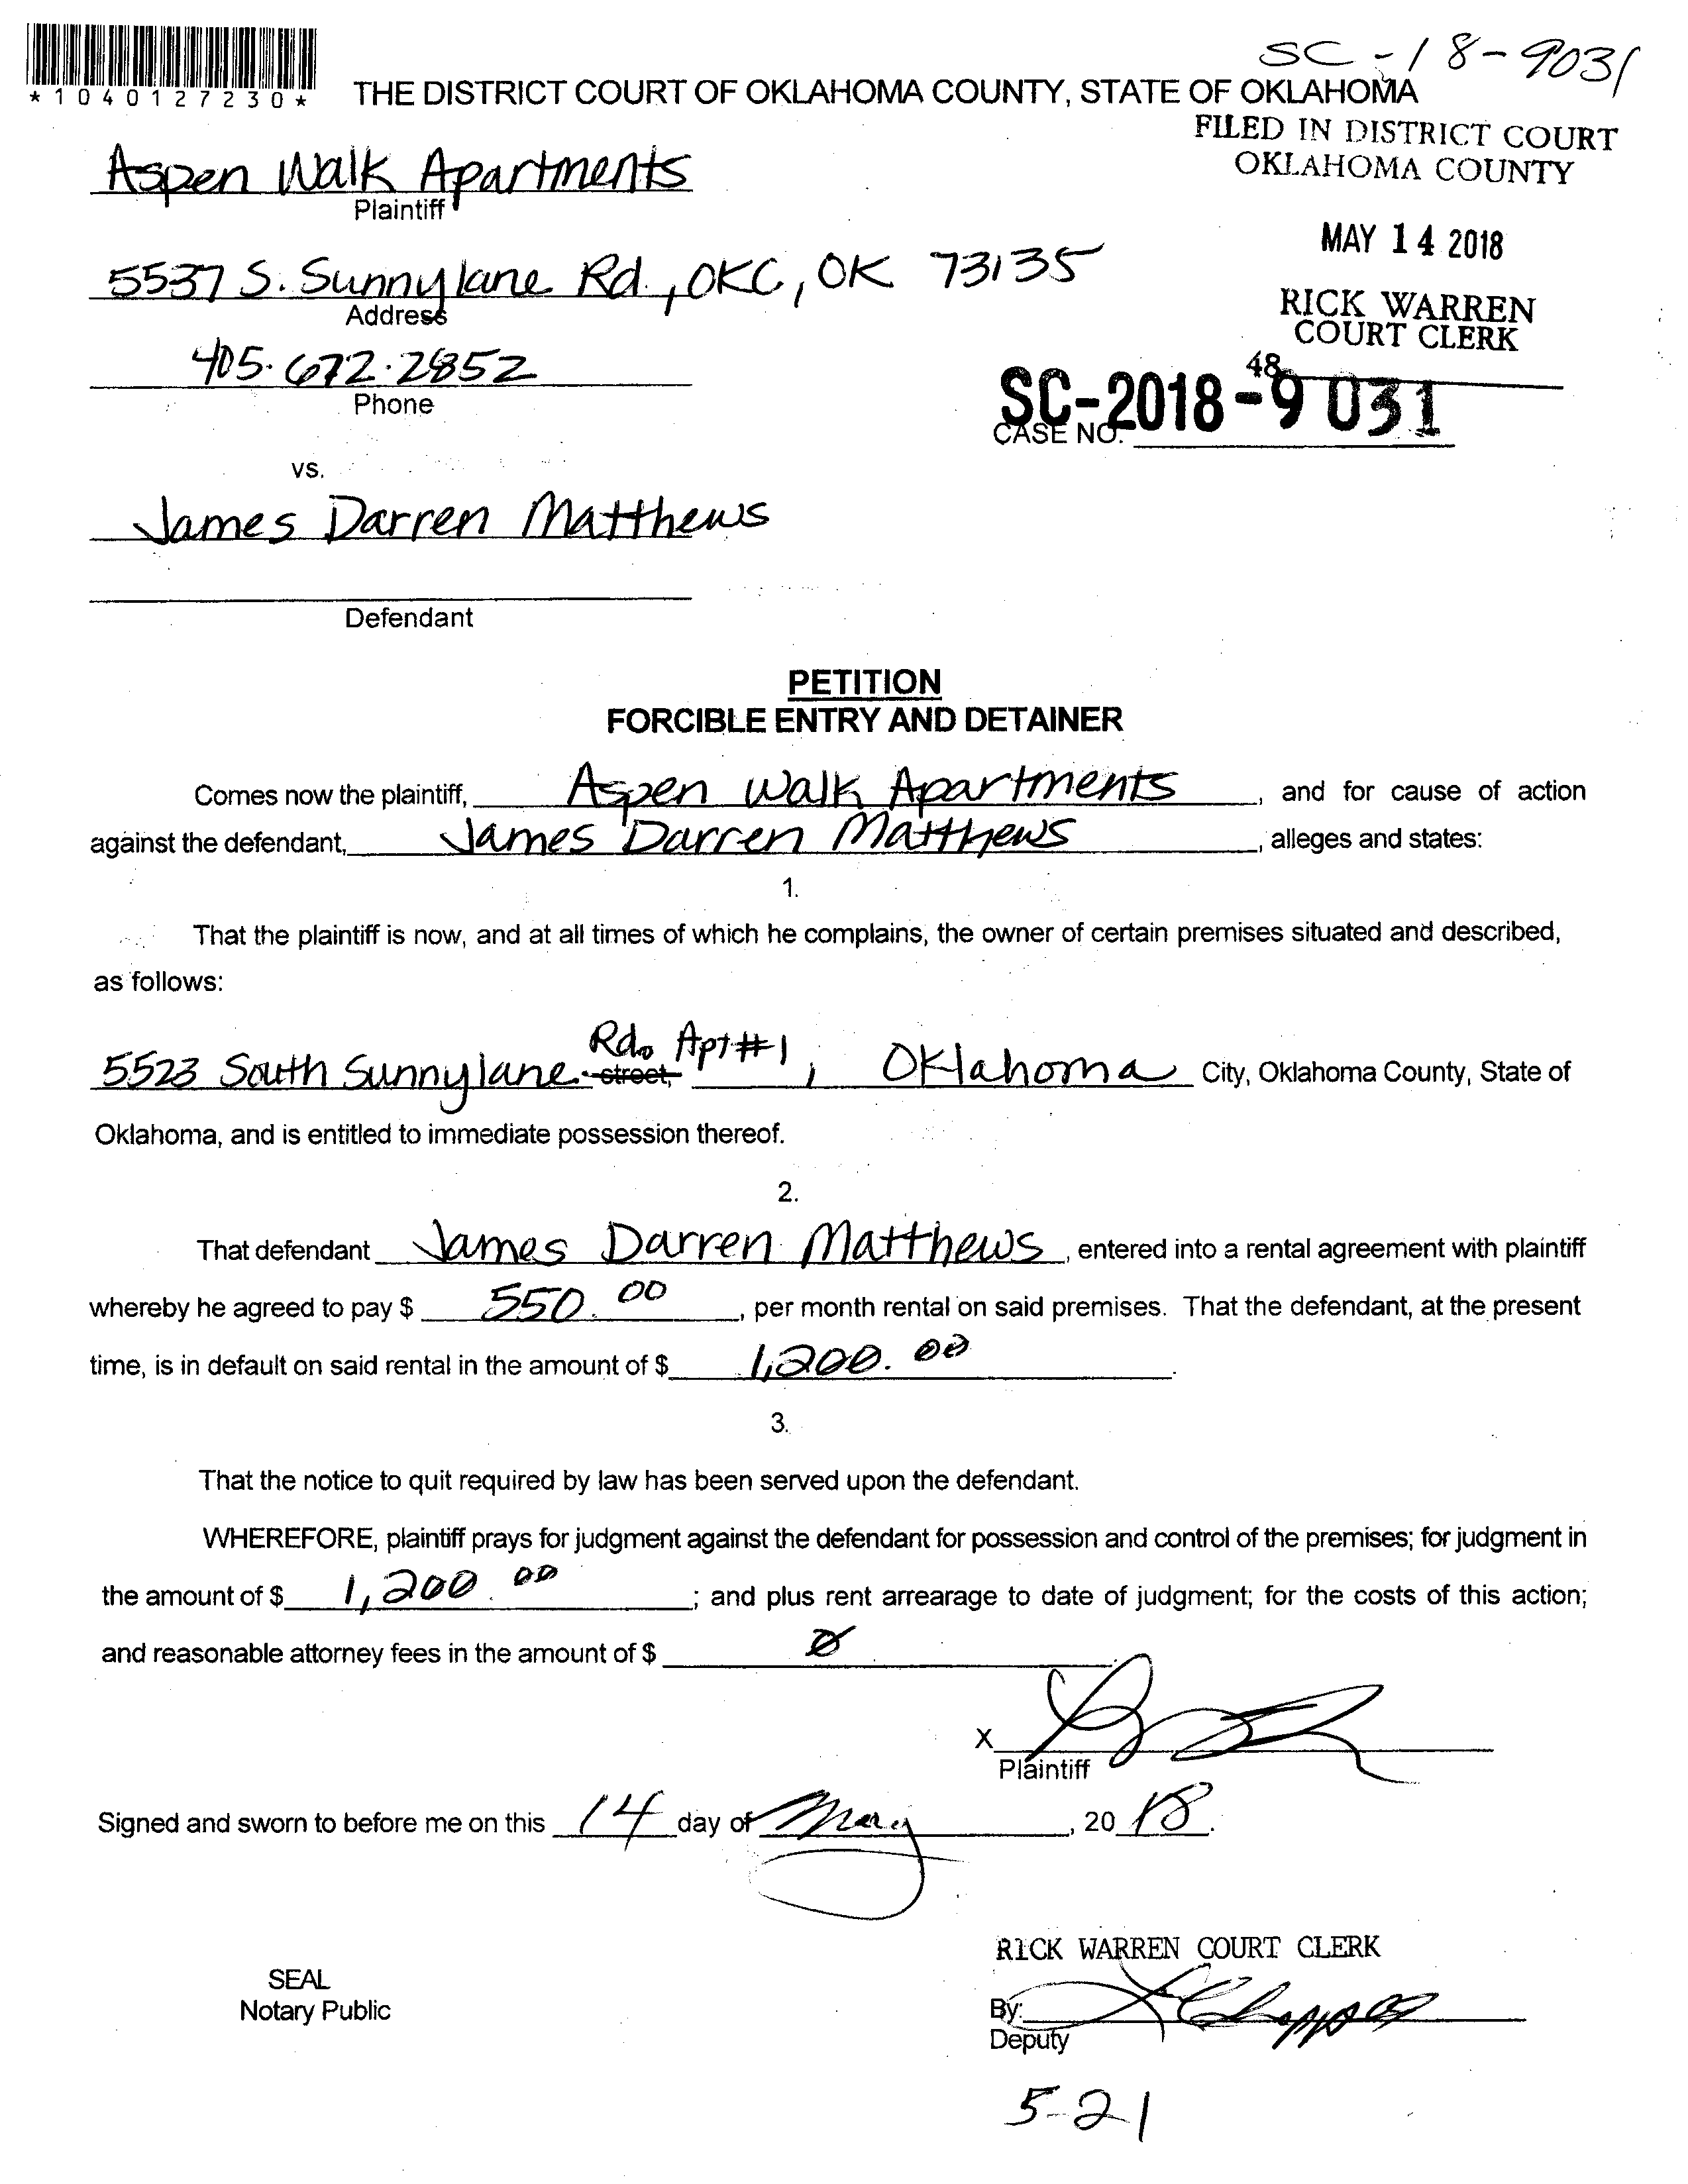 SC-18-9031
*1040127230*
THE DISTRICT COURT OF OKLAHOMA COUNTY, STATE OF OKLAHOMA
FILED IN DISTRICT COURT
OKLAHOMA COUNTY
Aspen Walk Apartments
Plaintiff
MAY 14 2018
5537 S. Sunnylane Rd., OKC, OK 73135
Address
RICK WARREN
COURT CLERK
405.672.2852
Phone
48
SC-2018-9031
CASE NO.
vs.
James Darren Matthews
Defendant
PETITION
FORCIBLE ENTRY AND DETAINER
Comes now the plaintiff, Aspen Walk Apartments, and for cause of action
against the defendant, James Darren Matthews, alleges and states:
1.
That the plaintiff is now, and at all times of which he complains, the owner of certain premises situated and described,
as follows:
5523 South Sunnylane street, Rd. Apt #1, Oklahoma City, Oklahoma County, State of
Oklahoma, and is entitled to immediate possession thereof.
2.
That defendant James Darren Matthews, entered into a rental agreement with plaintiff
whereby he agreed to pay $ 550.00, per month rental on said premises. That the defendant, at the present
time, is in default on said rental in the amount of $ 1,200.00.
3.
That the notice to quit required by law has been served upon the defendant.
WHEREFORE, plaintiff prays for judgment against the defendant for possession and control of the premises; for judgment in
the amount of $ 1,200.00; and plus rent arrearage to date of judgment; for the costs of this action;
and reasonable attorney fees in the amount of $ Ø.
X
Plaintiff
Signed and sworn to before me on this 14 day of May, 2018.
RICK WARREN COURT CLERK
SEAL
Notary Public
By:
Deputy
5-21